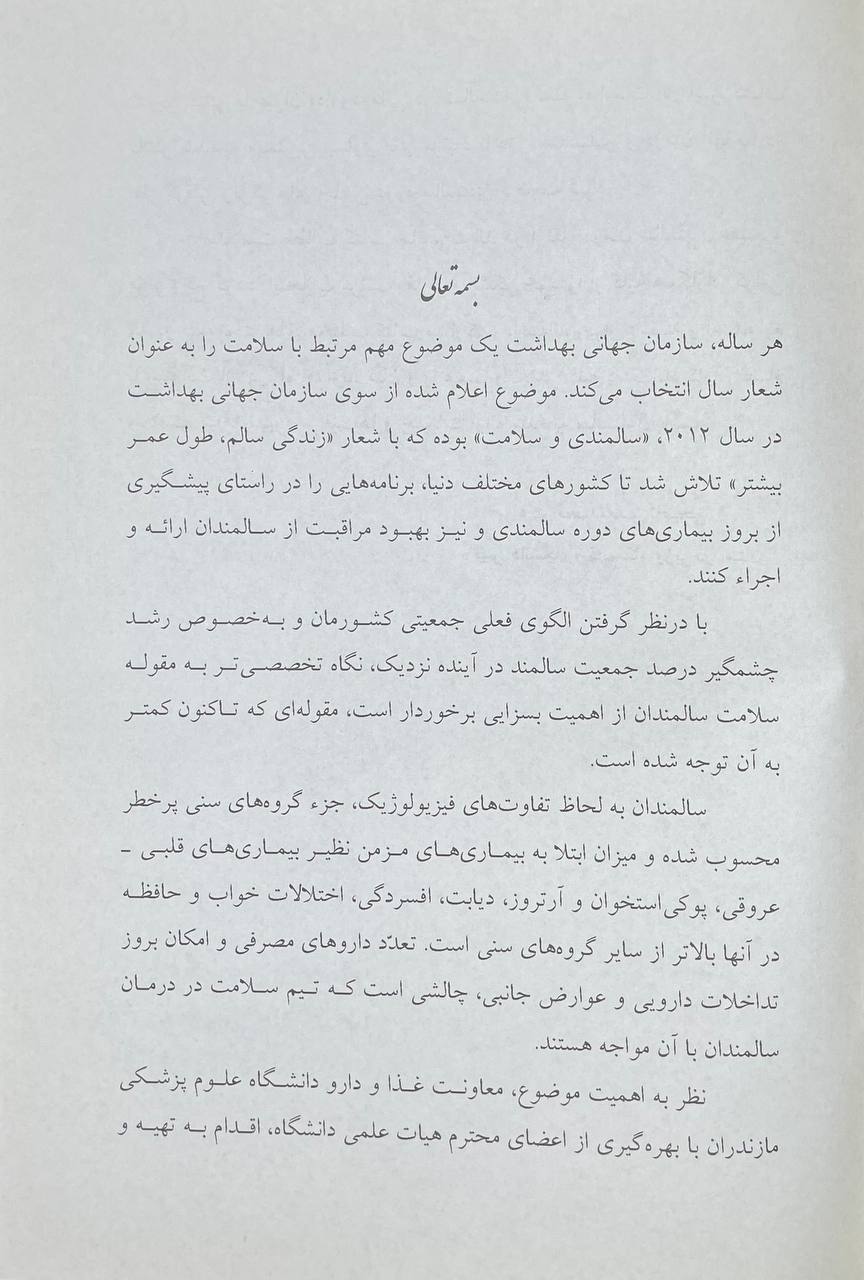 بسمه تعالی
هر ساله، سازمان جهانی بهداشت یک موضوع مهم مرتبط با سلامت را به عنوان
شعار سال انتخاب می‌کند. موضوع اعلام شده از سوی سازمان جهانی بهداشت
در سال ۲۰۱۲، «سالمندی و سلامت» بوده که با شعار «زندگی سالم، طول عمر
بیشتر» تلاش شد تا کشورهای مختلف دنیا، برنامه‌هایی را در راستای پیشگیری
از بروز بیماری‌های دوره سالمندی و نیز بهبود مراقبت از سالمندان ارائه و
اجراء کنند.
با درنظر گرفتن الگوی فعلی جمعیتی کشورمان و به‌خصوص رشد
چشمگیر درصد جمعیت سالمند در آینده نزدیک، نگاه تخصصی‌تر به مقوله
سلامت سالمندان از اهمیت بسزایی برخوردار است، مقوله‌ای که تاکنون کمتر
به آن توجه شده است.
سالمندان به لحاظ تفاوت‌های فیزیولوژیک، جزء گروه‌های سنی پرخطر
محسوب شده و میزان ابتلا به بیماری‌های مزمن نظیر بیماری‌های قلبی -
عروقی، پوکی‌استخوان و آرتروز، دیابت، افسردگی، اختلالات خواب و حافظه
در آنها بالاتر از سایر گروه‌های سنی است. تعدّد داروهای مصرفی و امکان بروز
تداخلات دارویی و عوارض جانبی، چالشی است که تیم سلامت در درمان
سالمندان با آن مواجه هستند.
نظر به اهمیت موضوع، معاونت غذا و دارو دانشگاه علوم پزشکی
مازندران با بهره‌گیری از اعضای محترم هیات علمی دانشگاه، اقدام به تهیه و